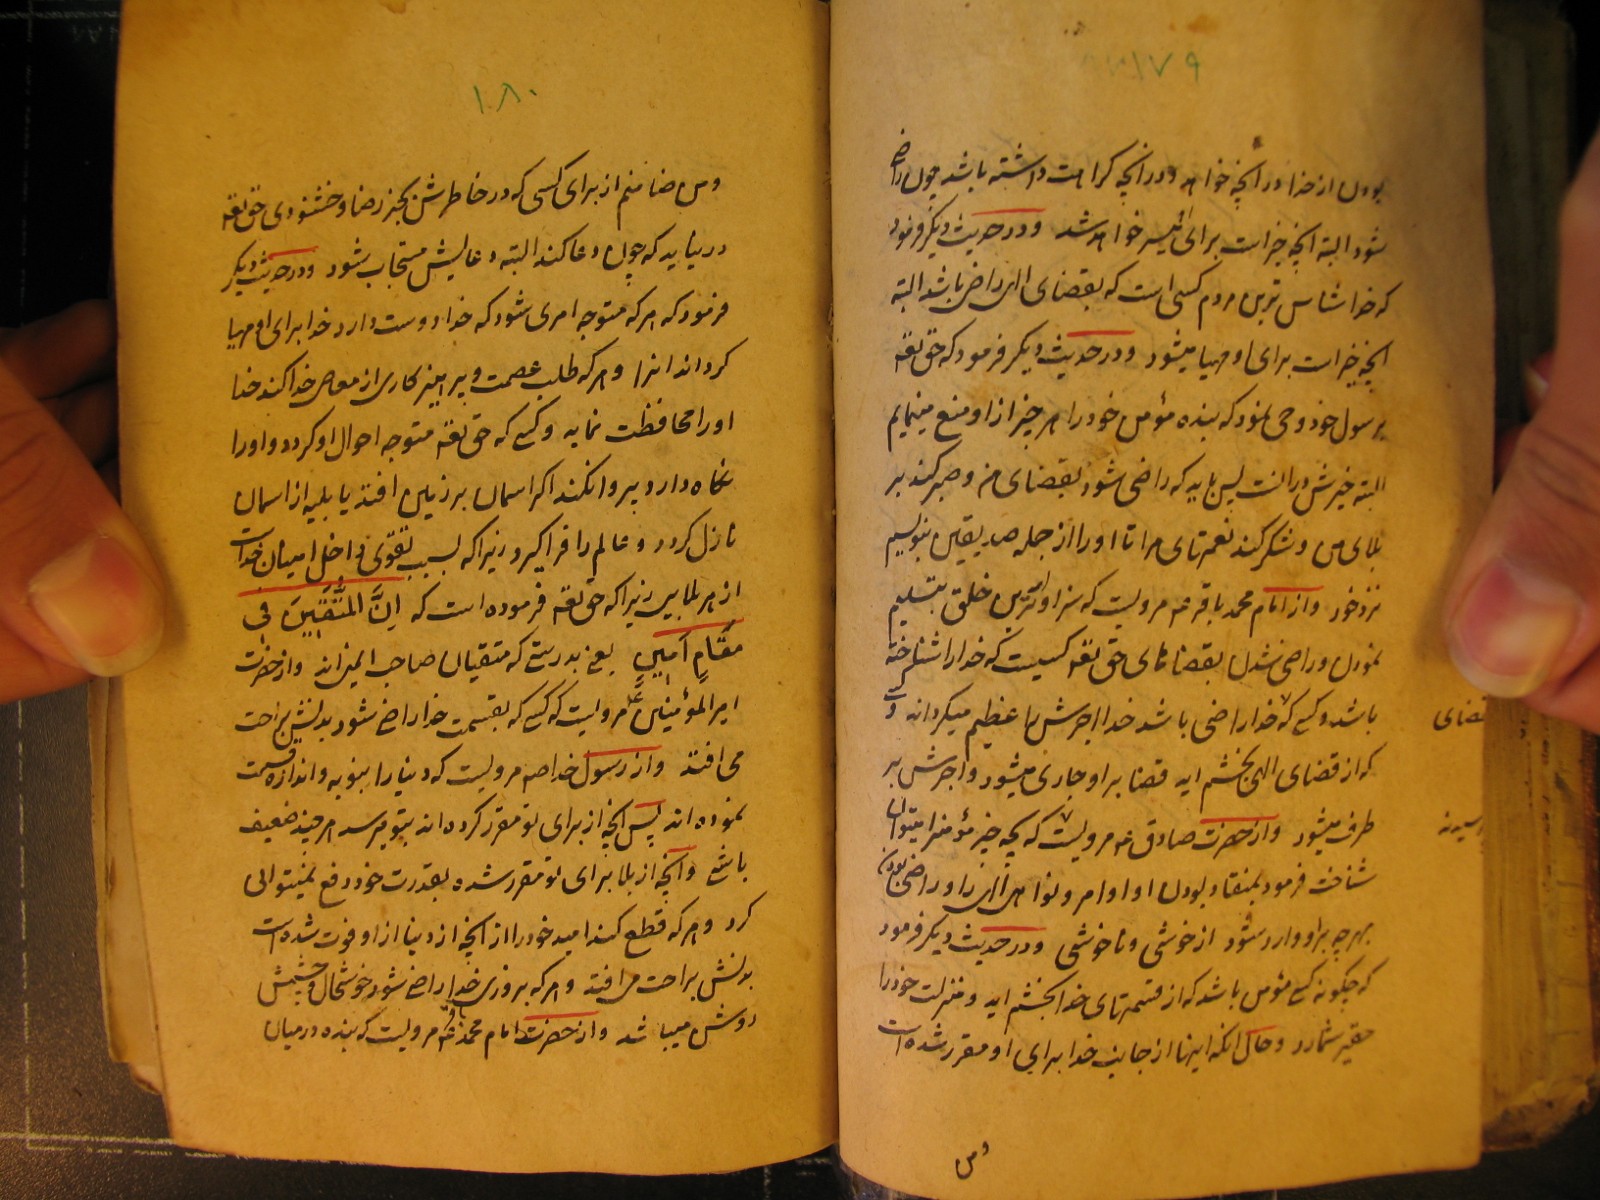 ۱۷۹
بودن از خدا در آنچه خواهد و در آنچه کراهت داشته باشد چون راضی
شود البته آنچه خیر است برای میسر خواهد شد و در حدیث دیگر فرمود
که خداشناس ترین مردم کسی است که بقضای الهی راضی باشد البته
آنچه خیر است برای او مهیا میشود و در حدیث دیگر فرمود که حق تعه
برسول خود وحی نمود که بنده مؤمن خود را هر چیز از او منع مینمایم
البته خیرش در آنست پس باید که راضی شود بقضای من و صبر کند بر
بلای من و شکر کند نعمتهای مرا تا او را از جمله صدیقین بنویسم
نزد خود و از امام محمد باقر عه مرویست که سزاوارترین خلق بتسلیم
نمودن و راضی شدن بقضاهای حق تعه کسیست که خدا را شناخته
باشد و کسی که خدا راضی باشد خدا اجرش را عظیم میگرداند و
قضای
که از قضای الهی بخشم اید قضا بر او جاری میشود و اجرش بر
طرف میشود و از حضرت صادق عه مرویست که بچه چیز مؤمنرا میتوان
شناخت فرمود بمنقاد بودن او اوامر و نواهی الهی را و راضی بودن
بهرچه بر او وارد شود از خوشی و ناخوشی و در حدیث دیگر فرمود
که چگونه کسی مؤمن باشد که از قسمتهای خدا بخشم اید و منزلت خود را
حقیر شمارد و حال آنکه اینها از جانب خدا برای او مقرر شده است
و من
۱۸۰
و من ضامنم از برای کسی که در خاطرش بجز رضا و خشنودی حق تعه
در نیاید که چون دعا کند البته دعایش مستجاب شود و در حدیث دیگر
فرمود که هر که متوجه امری شود که خدا دوست دارد خدا برای او مهیا
گرداند انرا و هر که طلب عصمت و پرهیزکاری از معاصی خدا کند خدا
او را محافظت نماید و کسی که حق تعه متوجه احوال او گردد و او را
نگاه دارد پروا نکند اگر اسمان بر زمین افتد یا بلیه از اسمان
نازل گردد و عالم را فرا گیرد زیرا که بسبب تقوی داخل امیان خداست
از هر بلایی زیرا که حق تعه فرموده است که اِنَّ المُتَّقینَ فی
مَقامٍ اَمینٍ یعنی بدرستی که متقیان صاحب ایمنی‌اند و از حضرت
امیر المؤمنین ع مرویست که کسی که بقسمت خدا راضی شود بدنش براحت
می افتد و از رسول خدا صه مرویست که دنیا را بنوبه و اندازه قسمت
نموده اند پس آنچه از برای تو مقرر کرده اند بتو میرسد هر چند ضعیف
باشی و آنچه از بلا برای تو مقرر شده بقدرت خود دفع نمیتوانی
کرد و هر که قطع کند امید خود را از آنچه از دنیا از او فوت شده است
بدنش براحت می افتد و هر که بروزی خدا راضی شود خوشحال و چشمش
روشن میباشد و از حضرت امام محمد باقر عه مرویست که بنده در میان